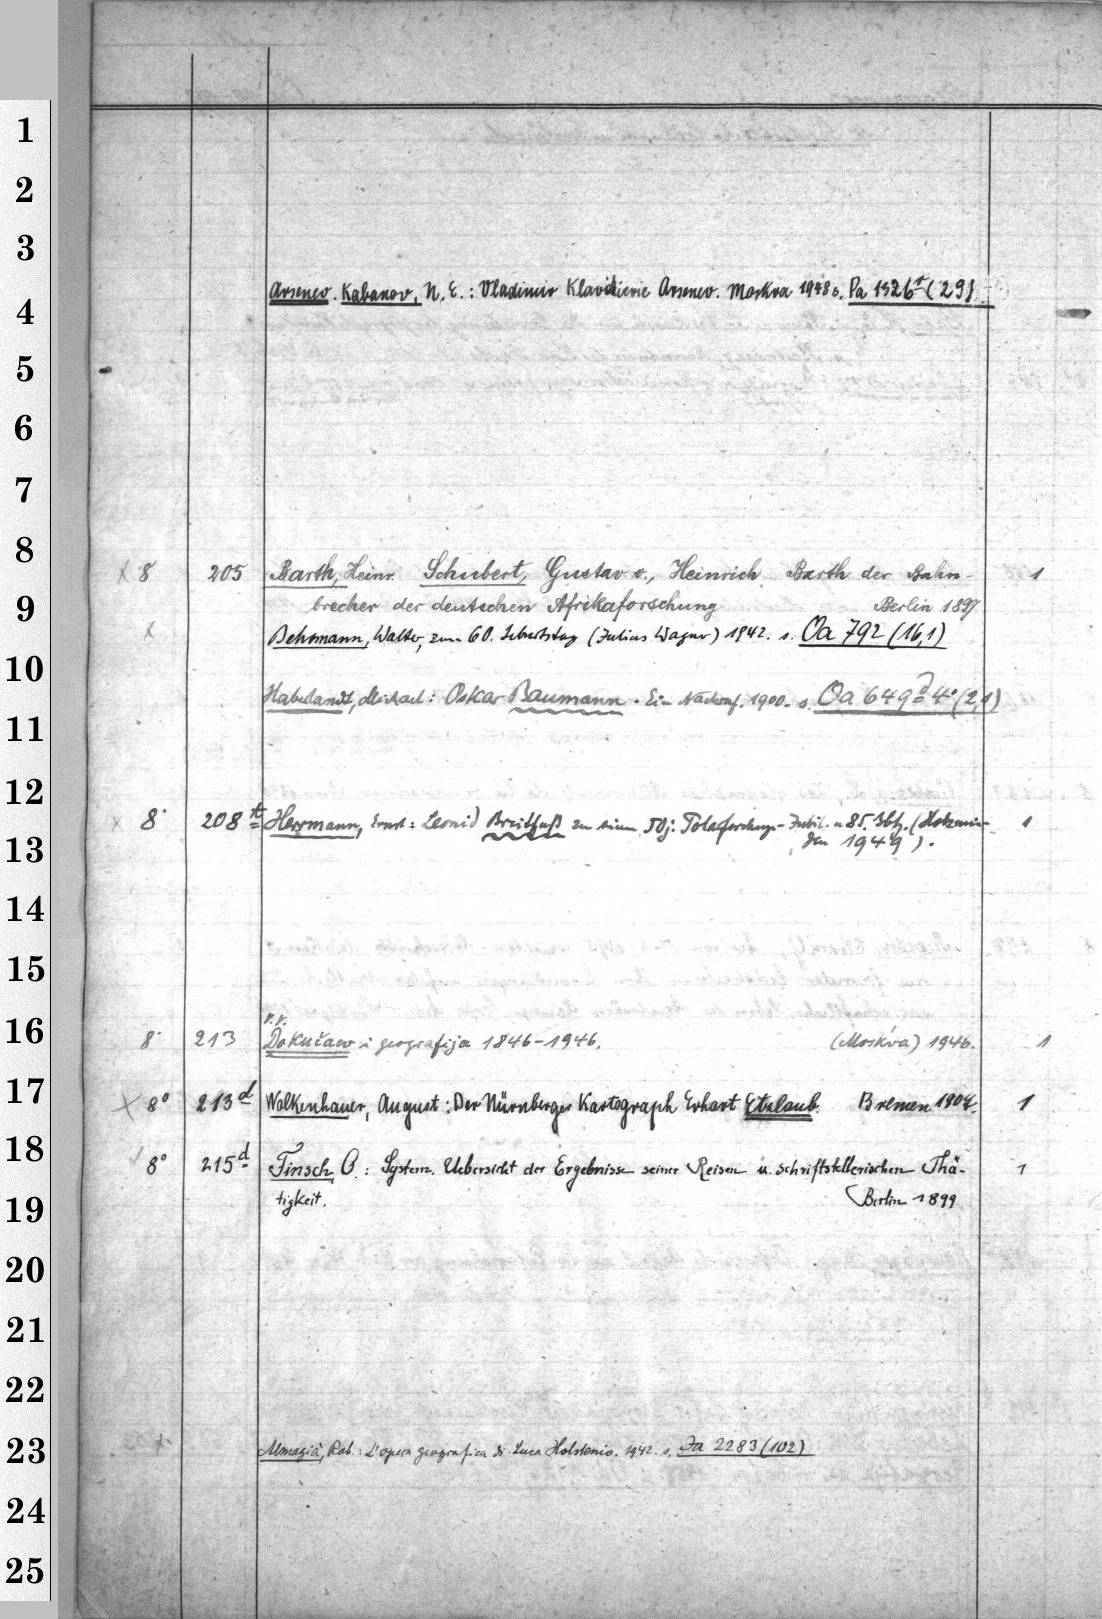 1
2
3
Arsenev. Kabanov, N. E.: Vladimir Klavdievic Arsenev. Moskva 1948 s. Pa 1526 (29)
4
5
6
7
8
8° 205 Barth, Heinr. Schubert, Gustav v., Heinrich Barth der Bahn- 1
9
brecher der deutschen Afrikaforschung Berlin 1897
Behrmann, Walter, zum 60. Geburtstag (Julius Wagner) 1942. s. Oa 792 (16,1)
10
Haberlandt, Michael: Oskar Baumann. Ein Nachruf. 1900. s. Oa 649 4° (2,1)
11
12
8° 208 Herrmann, Ernst: Leonid Breitfuß zu seinem 50j. Polarforschungs-Jubil. u. 85. Gbtg. (Holzmin- 1
13
den 1949).
14
15
V. V.
16
8° 213 Dokučaev i geografija 1846-1946. (Moskva) 1946. 1
17
8° 213d Wolkenhauer, August: Der Nürnberger Kartograph Erhart Etzlaub. Bremen 1907. 1
18
8° 215d Finsch, O.: System. Uebersicht der Ergebnisse seiner Reisen u. schriftstellerischen Thä- 1
19
tigkeit. Berlin 1899
20
21
22
23
Almagià, Rob.: L'opera geografica di Luca Holstenio. 1942. s. Ja 2283 (102)
24
25